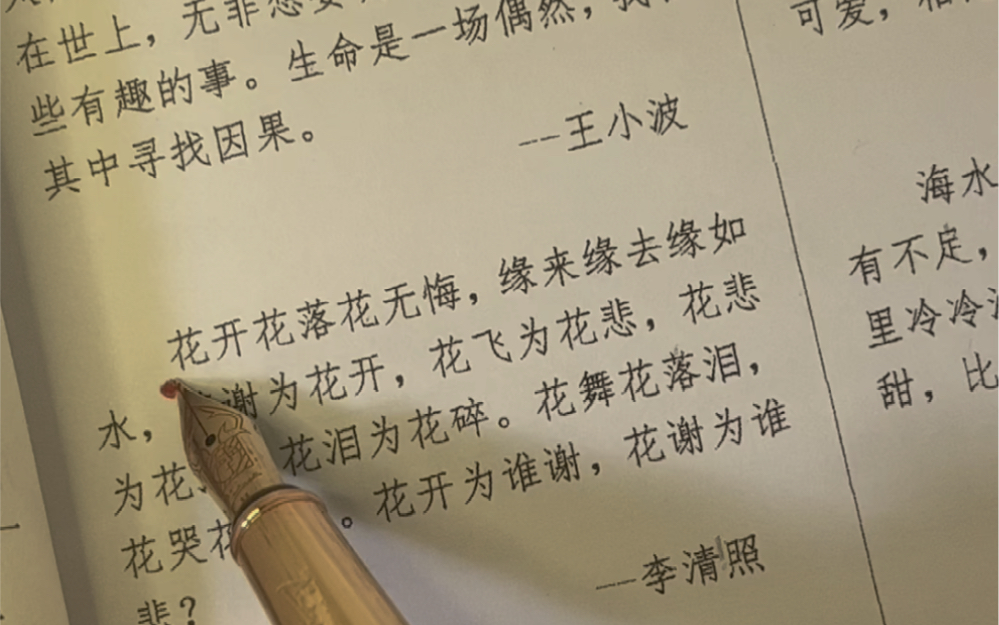 在世上，无非想
些有趣的事。生命是一场偶然，我
其中寻找因果。
---王小波
花开花落花无悔，缘来缘去缘如
水，谢为花开，花飞为花悲，花悲
为花 花泪为花碎。花舞花落泪，
花哭花 。花开为谁谢，花谢为谁
悲？
---李清照
可爱，
海水
有不足，
里冷冷
甜，比